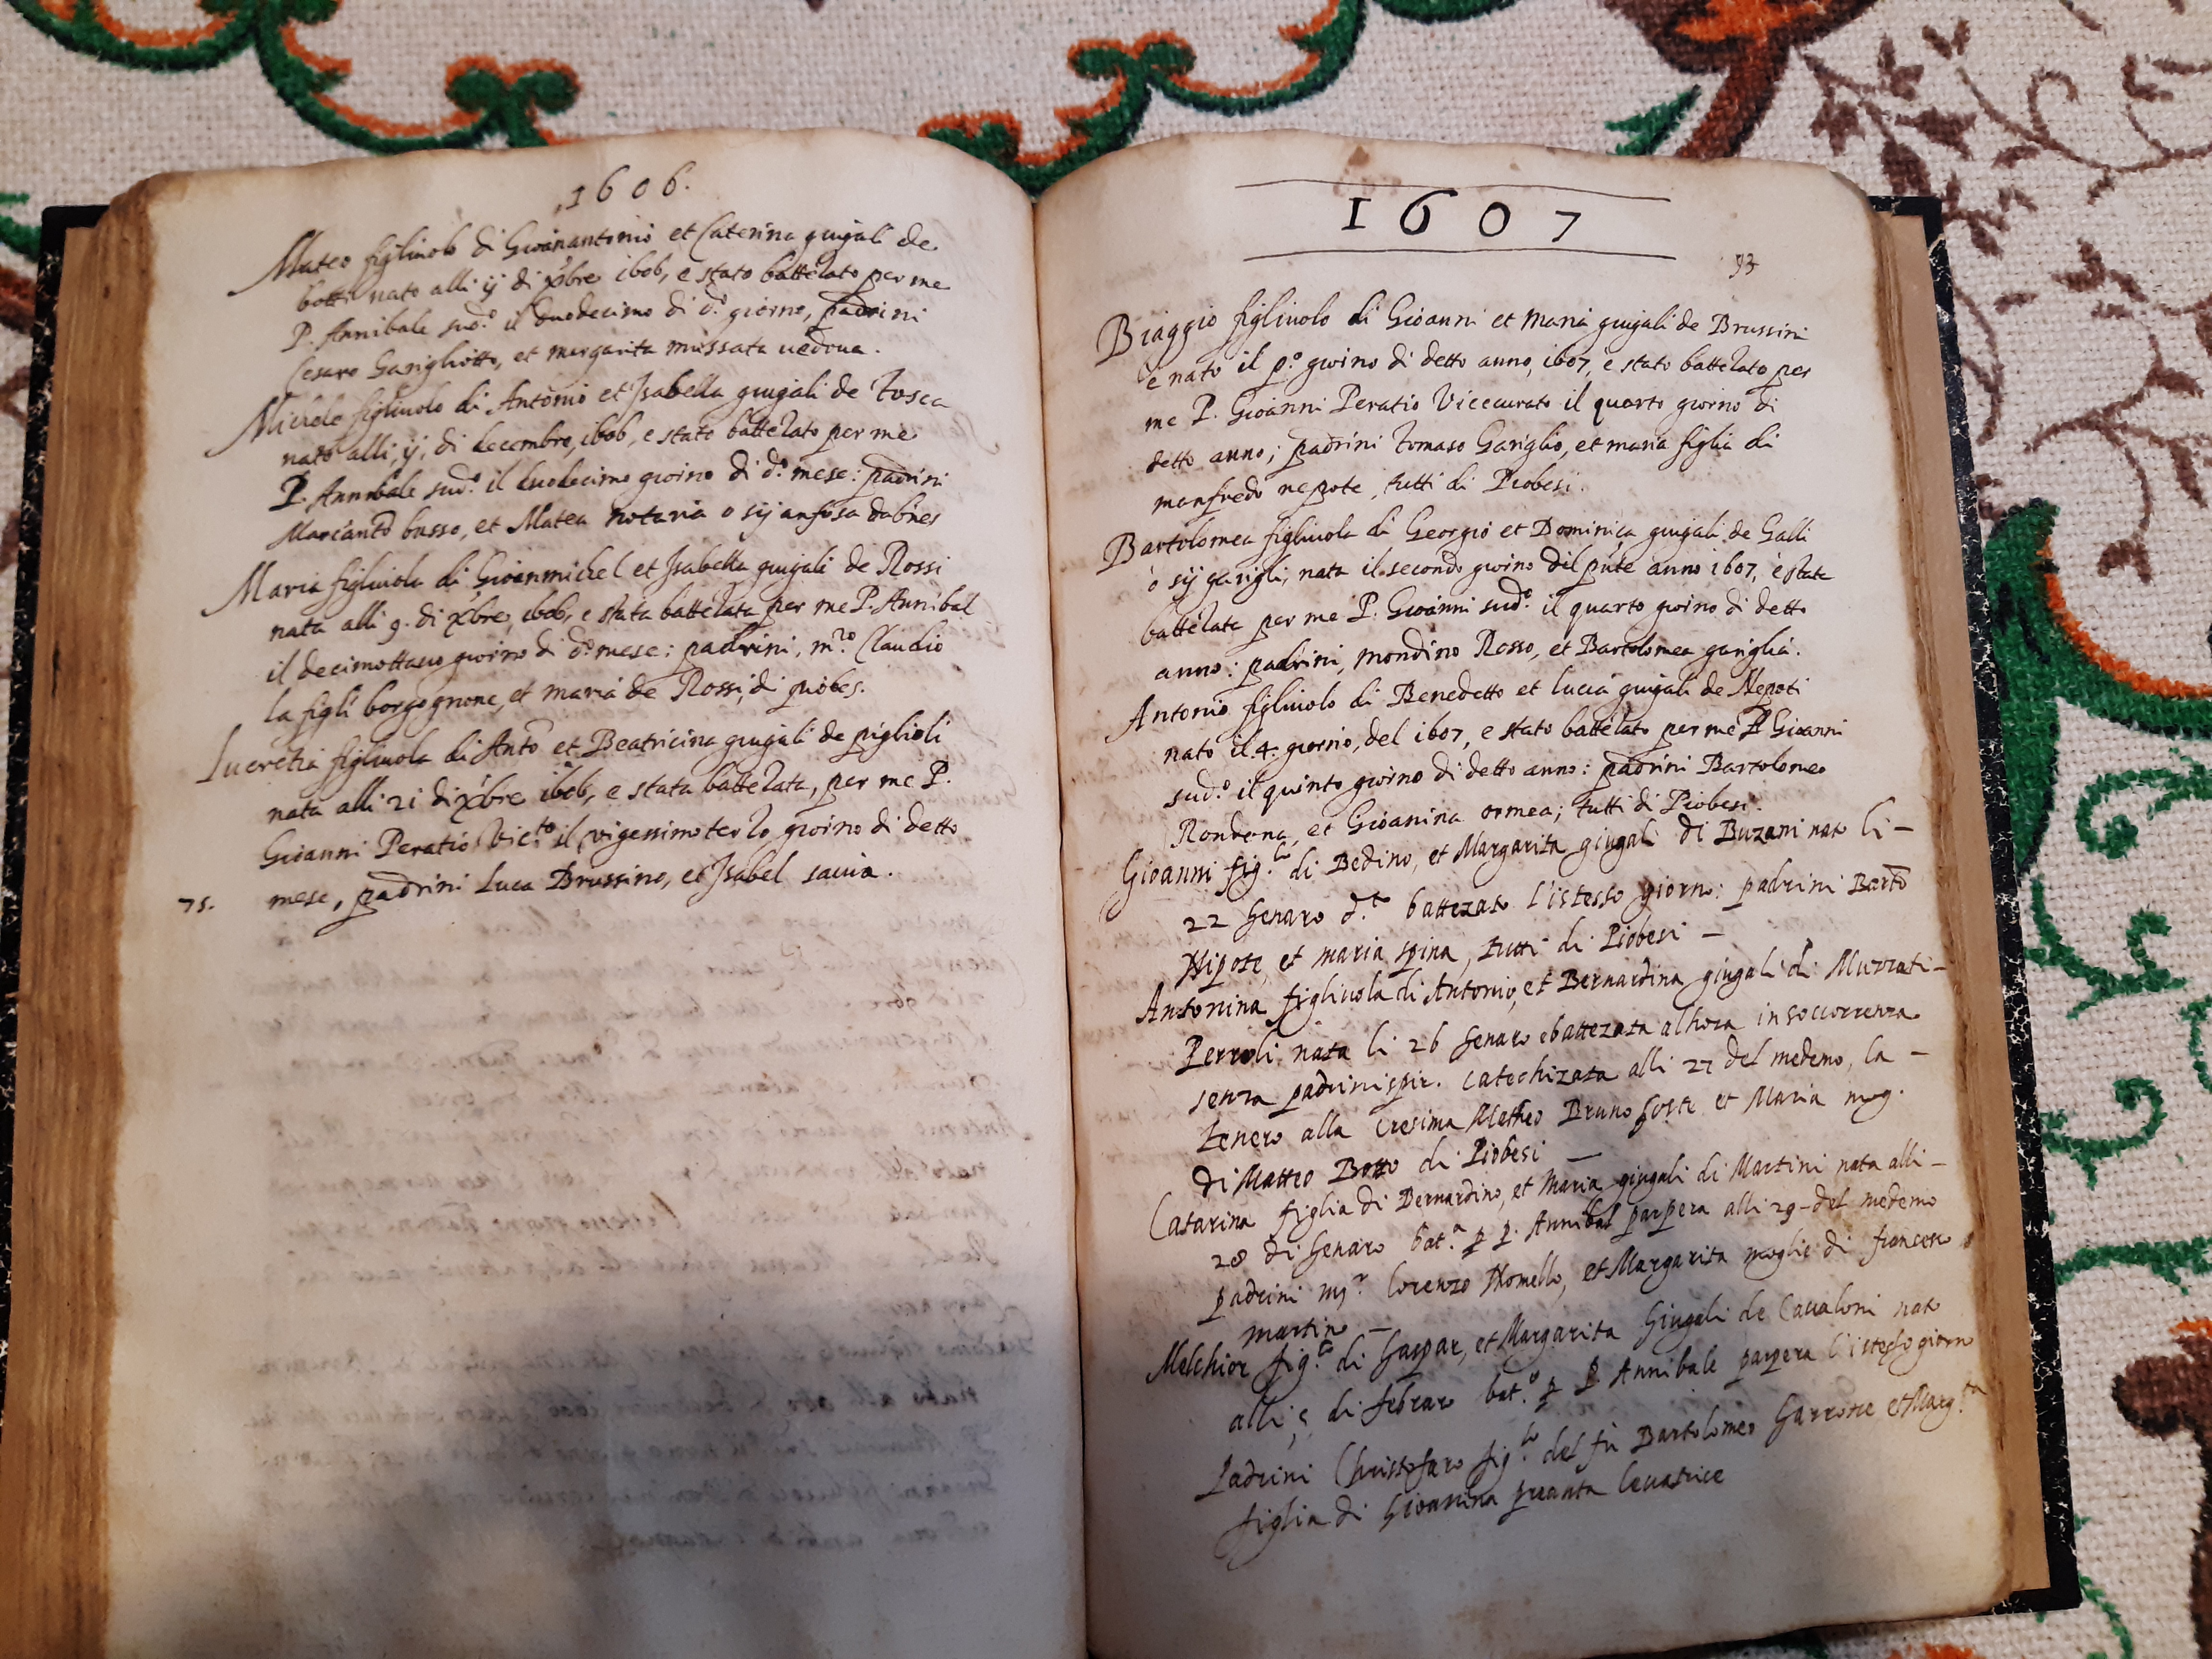 1606.
Mateo figliuolo di Gioinantonio et Caterina giugali de
botti nato alli ij di xbre 1606, e stato battezato per me
P. Annibale sud.o il duodecimo di d.o giorno, padrini
Cesare Garigliotto, et margarita mussata uedoua.
Michele figliuolo di Antonio et Isabella giugali de Tosca
nato alli, ij, di decembre, 1606, e stato battezato per me
P. Annibale sud.o il duodecimo giorno di d.o mese: padrini
Marcanto busso, et Matea notaria o sij anfosa
Maria figliuola di Gioanmichel et Isabella giugali de Rossi
nata alli 9. di xbre, 1606, e stata battezata per me P. Annibal
il decimottauo giorno di d.o mese: padrini, m.ro Claudio
la figli borgognone, et maria de Rossi, di piobes.
Lucretia figliuola di Anto et Beatricina giugali de piglioli
nata alli 21 di xbre 1606, e stata battezata, per me P.
Gioanni Peratio Vic.to il vigessimo terzo giorno di detto
75. mese, padrini Luca Brussino, et Isabel sauia.
1607
93
Biaggio figliuolo di Gioanni et Maria giugali de Brussini
è nato il p.o giorno di detto anno, 1607, è stato battezato per
me P. Gioanni Peratio Vicecurato il quarto giorno di
detto anno; padrini Tomaso Gariglio, et maria figlia di
manfredo nepote, tutti di Piobesi.
Bartolomea figliuola di Georgio et Dominica giugali de Galli
ò sij garigli, nata il secondo giorno dil pnte anno 1607, è stata
battezata per me P. Gioanni sud.o il quarto giorno di detto
anno: padrini, mondino Rosso, et Bartolomea gariglia.
Antonio figliuolo di Benedetto et lucia giugali de Nepoti
nato il 4. giorno, del 1607, e stato battezato per me P Gioanni
sud.o il quinto giorno di detto anno: padrini Bartolomeo
Rondana, et Gioanina ormea; tutti di Piobesi.
Gioanni fig.lo di Bedino, et Margarita giugali di Buzani nato li –
22 Genaro d.to battezato l'istesso giorno: padrini Barto
Nipote, et maria spina, tutti di Piobesi –
Antonina figliuola di Antonio, et Bernardina giugali di Muzzati –
Perroli, nata li 26 Genaro ebattezata alhora in soccorrenza
senza padrini spir. catechizata alli 27 del medemo, la –
tenero alla cresima Mattheo Bruno hoste et Maria mog.
di Matteo Botto di Piobesi –
Catarina figlia di Bernardino, et Maria giugali di Martini nata alli –
28 di Genaro bat.a p P. Annibal parpera alli 29 del medemo
padrini mr Lorenzo Nomello, et Margarita moglie di francesco
martino –
Melchior fig.lo di Gaspar, et Margarita Giugali de Caualoni nato
alli 5 di febraro bat.o p P Annibale parpera l'istesso giorno
Padrini Christofaro fig.lo del fù Bartolomeo Garrone et Marg.ta
figlia di Gioanina leuatrice